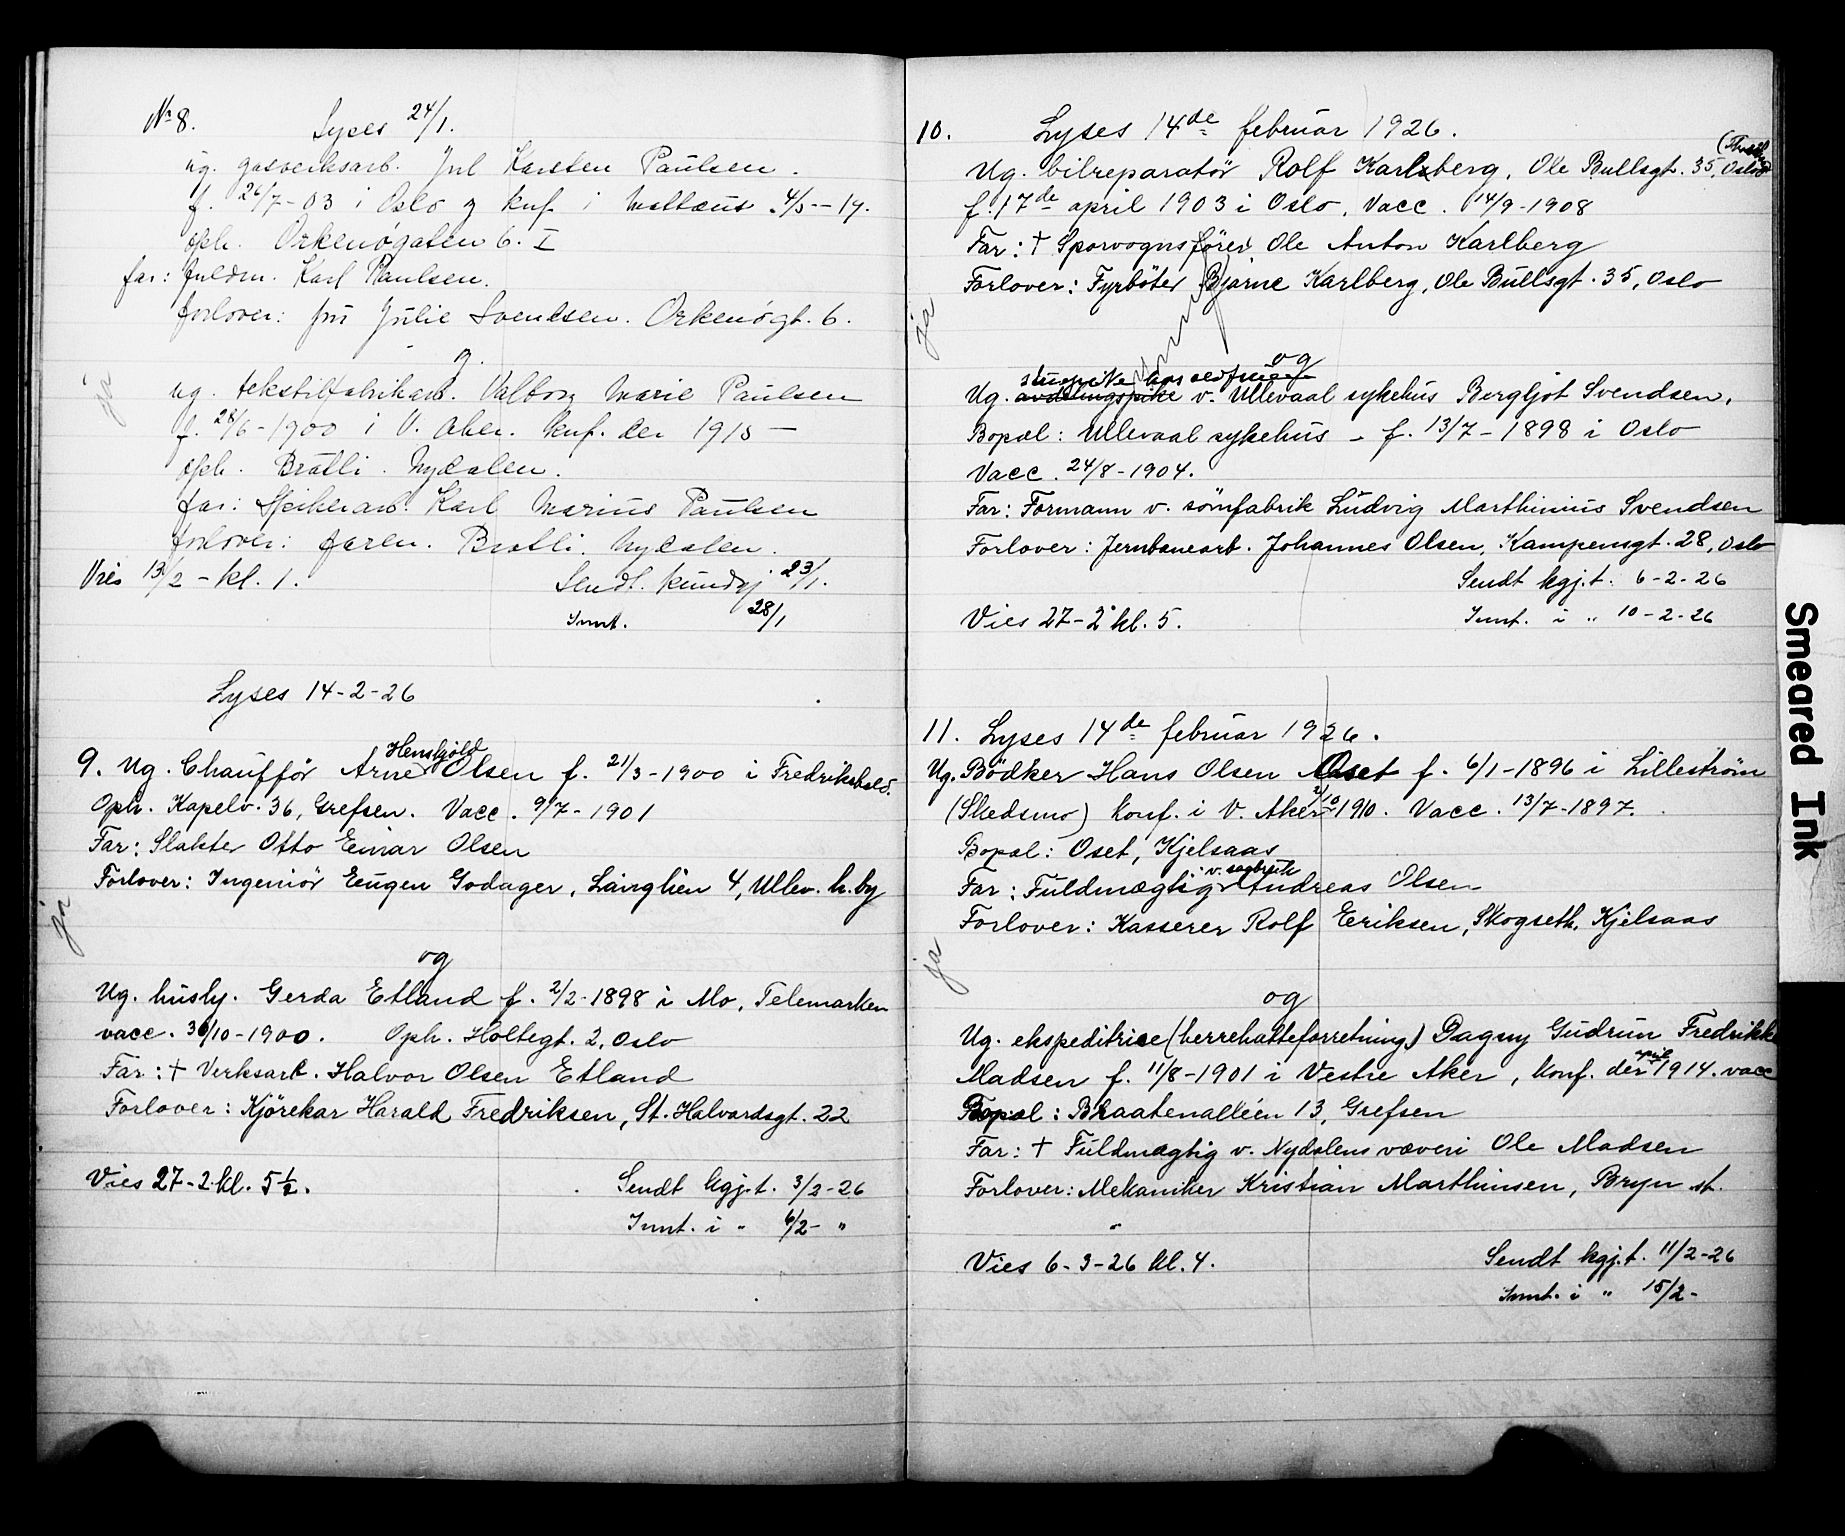 No 8. Lyses 24/1.
ug. gasverksarb. Jul Karsten Paulsen.
f. 26/7-03 i Oslo og knf. i Mattæus 4/5--19.
oph. Orkenøgaten 6. I
far: fuldm. Karl Paulsen.
forlover: fru Julie Svendsen. Orkenøgt. 6.
og.
ja
ug. tekstilfabrikarb. Valborg Marie Paulsen
f. 28/6-1900 i V. Aker. knf. der 1915 —
oph. Bråtli. Nydalen.
far: Spikerarb. Karl Marius Paulsen
forlover: faren. Bråtli. Nydalen.
Vies 13/2 - kl. 1. Sendt. kundgj 23/1.
Innt. 28/1
Lyses 14-2-26
Henskjöld
9. Ug. Chaufför Arne Olsen f. 21/3-1900 i Fredrikshald.
Oph. Kapelv. 36, Grefsen. Vacc. 9/7-1901
Far: Slakter Otto Einar Olsen
Forlover: Ingeniör Eugen Godager, Langlien 4, Ullev. h. by
ja
og
Ug. hushj. Gerda Etland f. 2/2-1898 i Mo, Telemarken
vacc. 30/10-1900. Oph. Holtegt. 2, Oslo
Far: † Verksarb. Halvor Olsen Etland
Forlover: Kjörekar Harald Fredriksen, St. Halvardsgt. 22
Vies 27-2 kl. 5½. Sendt kgj.t. 3/2-26
Innt. i " 6/2- "
10. Lyses 14de februar 1926.
Ug. bilreparatör Rolf Karlsberg, Ole Bullsgt. 35, Oslo
f. 17de april 1903 i Oslo, Vacc. 14/9-1908
Far: † Sporvognsförer Ole Anton Karlberg
Forlover: Fyrböter Bjarne Karlberg, Ole Bullsgt. 35, Oslo
ja
og
Ug. avdelingspike v. Ullevaal sykehus Bergljot Svendsen,
Bopæl: Ullevaal sykehus - f. 13/7-1898 i Oslo
Vacc. 24/8-1904.
Far: Formann v. sömfabrik Ludvig Marthinius Svendsen
Forlover: Jernbanearb. Johannes Olsen, Kampensgt. 28, Oslo
Sendt kgj.t. 6-2-26
Vies 27-2 kl. 5. Innt. i " 10-2-26
11. Lyses 14de februar 1926.
Ug. Bödker Hans Olsen Oset f. 6/1-1896 i Lilleström
(Skedsmo) konf. i V. Aker 2/10 1910. Vacc. 13/7-1897.
Bopæl: Oset, Kjelsaas
v. sagbruk
Far: Fuldmægtig Andreas Olsen
Forlover: Kasserer Rolf Eeriksen, Skogseth, Kjelsaas
ja
og
Ug. ekspeditrice (herrehatteforretning) Dagny Gudrun Fredrikke
april
Madsen f. 11/8-1901 i Vestre Aker, konf. der 1914. vacc
Bopæl: Braatenalléen 13, Grefsen
Far: † Fuldmægtig v. Nydalens væveri Ole Madsen
Forlover: Mekaniker Kristian Marthinsen, Bryn st.
Vies 6-3-26 kl. 4. Sendt kgj.t. 11/2-26
Innt. i " 15/2-
Smeared Ink